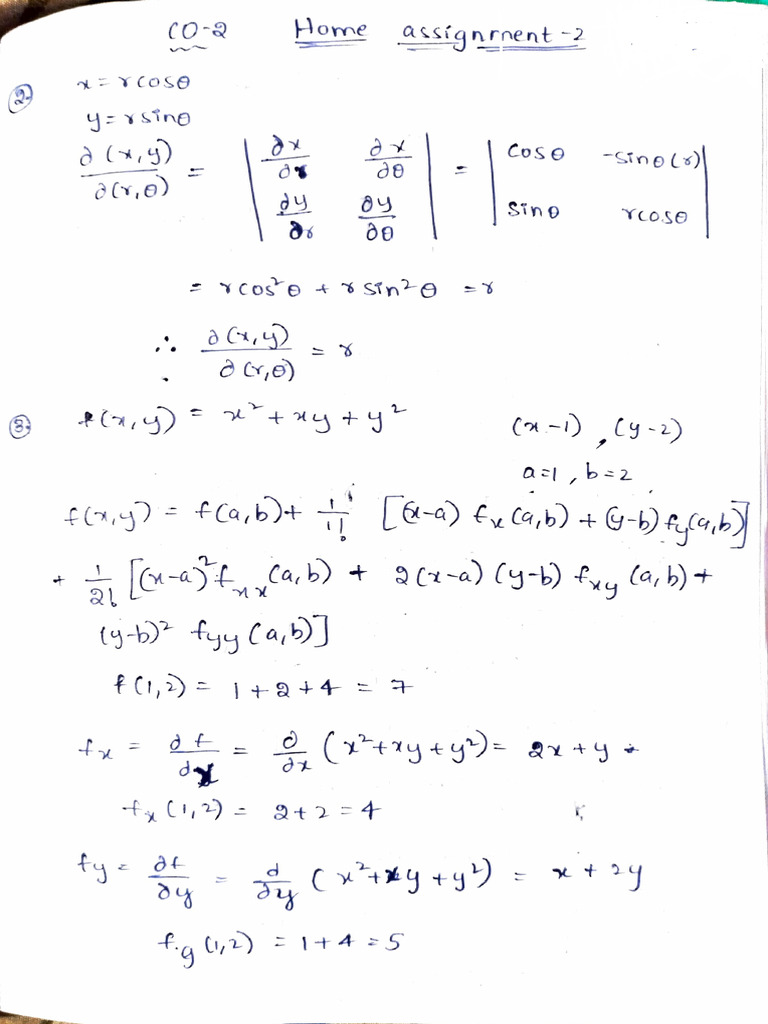 CO-2 Home assignment-2
2. x = rcosθ
y = rsinθ
∂(x,y)/∂(r,θ) = | ∂x/∂r ∂x/∂θ ; ∂y/∂r ∂y/∂θ | = | cosθ -sinθ(r) ; sinθ rcosθ |
= rcos²θ + rsin²θ = r
∴ ∂(x,y)/∂(r,θ) = r
3. f(x,y) = x² + xy + y² (x-1), (y-2)
a=1, b=2
f(x,y) = f(a,b) + 1/1! [(x-a) fx(a,b) + (y-b) fy(a,b)]
+ 1/2! [(x-a)² fxx(a,b) + 2(x-a)(y-b) fxy(a,b) +
(y-b)² fyy(a,b)]
f(1,2) = 1+2+4 = 7
fx = ∂f/∂x = ∂/∂x (x²+xy+y²) = 2x+y
fx(1,2) = 2+2 = 4
fy = ∂f/∂y = d/∂y (x²+xy+y²) = x+2y
f.y(1,2) = 1+4 = 5